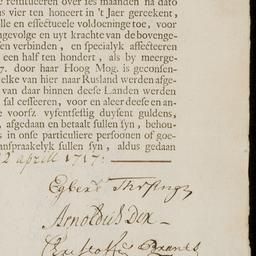 is vier ten honeert in 't Jaer gereekent,
lle en effectueele voldoeninge toe, voor
ngevolge en uyt krachte van de bovenge-
sen verbinden, en specialyk affecteeren
en een half ten hondert, als by meerge-
7. door haar Hoog Mog. is geconsen-
elke van hier naar Rusland werden afge-
van daar binnen deese Landen werden
sal cesseeren, voor en aleer deese en an-
e voorsz vyfentseftig duysent guldens,
, afgedaan en betaalt sullen syn, behou-
s in onse particuliere persoonen of goe-
anspraakelyk sullen syn, aldus gedaan
2 aprill 1717:
Egbert
Arnoldus Dix
Christoffel Brants